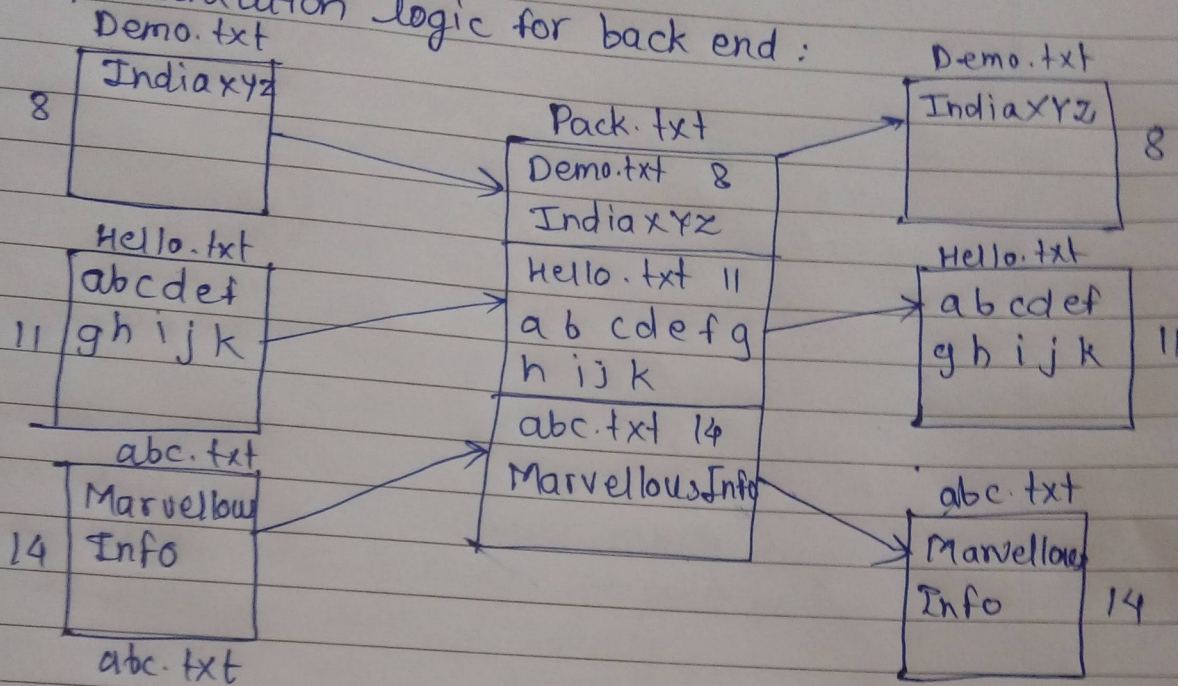 logic for back end :
Demo.txt
Indiaxyz
8
Hello.txt
abcdef
11
ghijk
abc.txt
Marvellous
14
Info
abc.txt
Pack.txt
Demo.txt 8
IndiaxYz
Hello.txt 11
ab cdefg
hijk
abc.txt 14
MarvellousInfo
Demo.txt
IndiaxYz
8
Hello.txt
abcdef
ghijk
11
abc.txt
Marvellous
Info
14